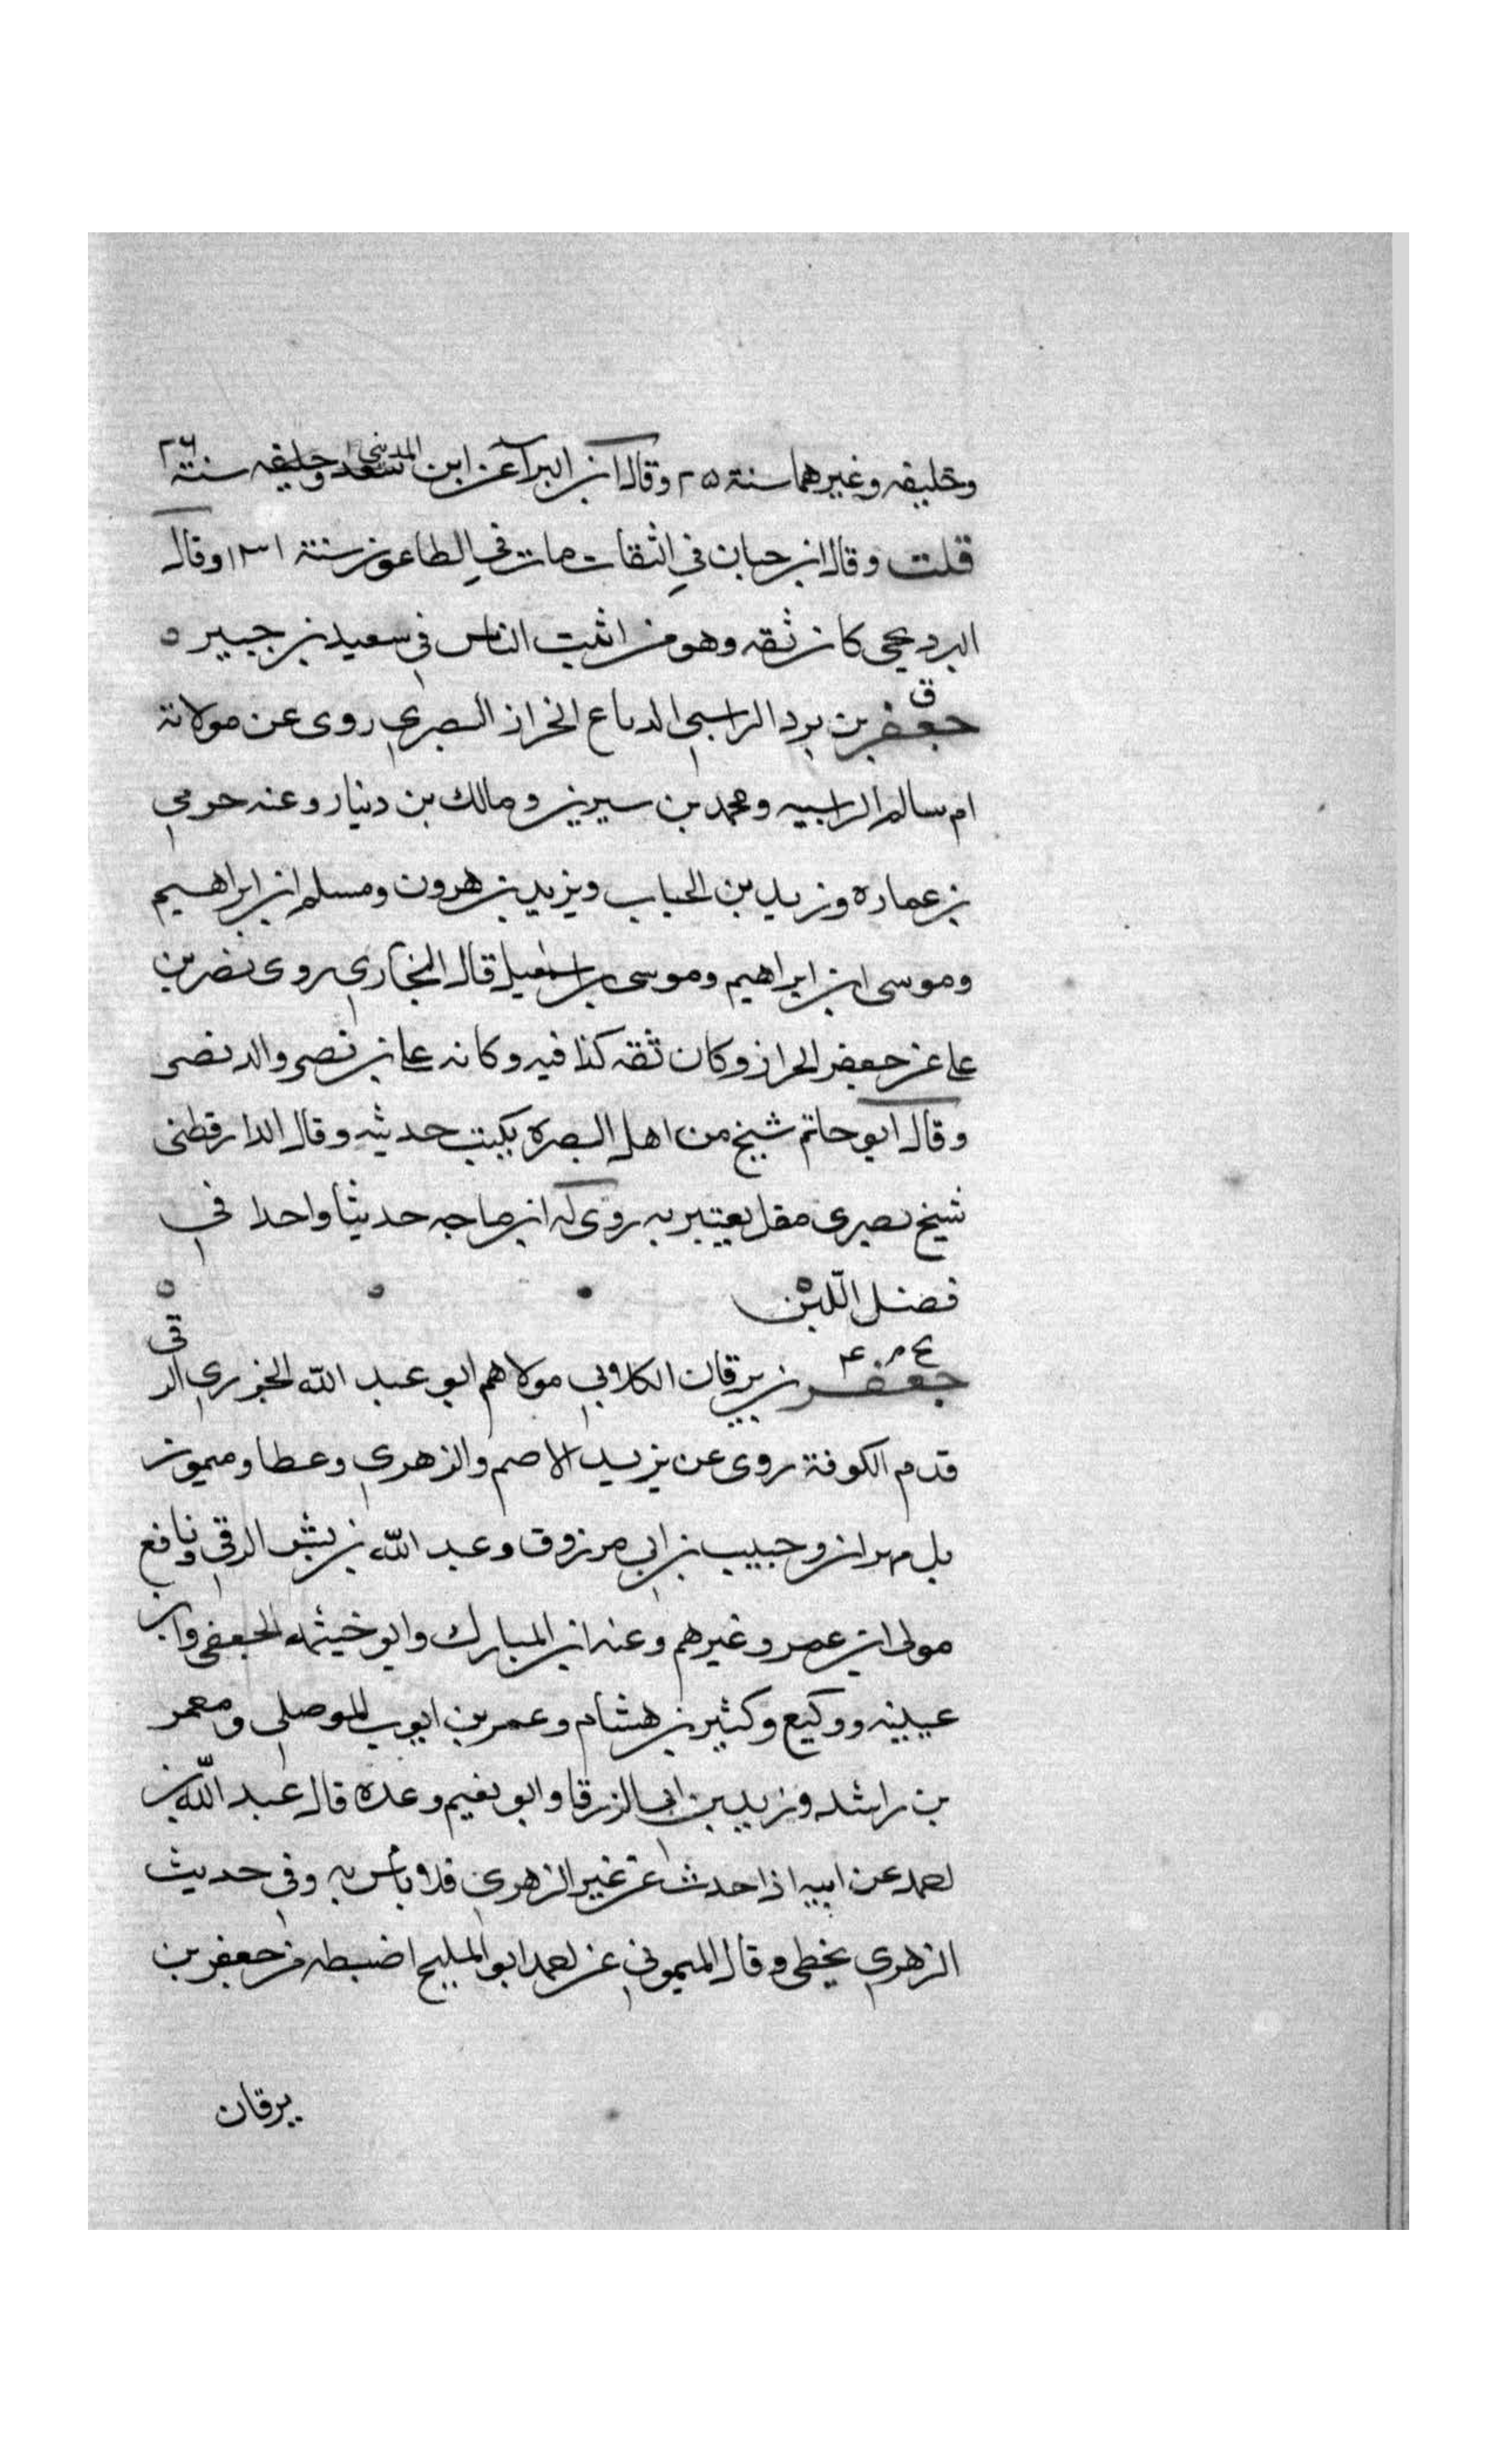 وخليفه وغيرهما سنة ٢٥ وقال ابن البرآ عن ابن المديني سعد وخليفه سنة ٢٦
قلت وقال ابن حبان في الثقات مات في الطاعون سنة ١٣١ وقال
البرديجي كان ثقه وهو من اثبت الناس في سعيد بن جبير ه
ق
جعفر بن برد الراسبي الدباغ الخراز البصري روى عن مولاته
ام سالم الراسبيه ومحمد بن سيرين ومالك بن دينار وعنه حرمي
بن عماره وزيد بن الحباب ويزيد بن هرون ومسلم ابن ابراهيم
وموسى ابن ابراهيم وموسى بن اسمعيل قال البخاري روى نصر بن
علي عن جعفر الخراز وكان ثقه كذا فيه وكانه علي بن نصر والد نصر
وقال ابو حاتم شيخ من اهل البصره يكتب حديثه وقال الدارقطني
شيخ بصرى مقل يعتبر به روى له ابن ماجه حديثا واحدا في
فضل اللبن ه
بخ م ٤
جعفر بن برقان الكلابي مولاهم ابو عبد الله الجزري الرقي
قدم الكوفة روى عن يزيد الاصم والزهري وعطا وميمون
بل مهران وحبيب بن ابي مرزوق وعبد الله بن بشر الرقي ونافع
مولى ابن عمر وغيرهم وعنه ابن المبارك وابو خيثمه الجعفى وابن
عيينه ووكيع وكثير بن هشام وعمر بن ايوب الموصلي ومعمر
بن راشد وزيد بن ابي الزرقا وابو نعيم وعده قال عبد الله بن
احمد عن ابيه اذا حدث عن غير الزهري فلا بأس به وفي حديث
الزهري يخطى وقال الميموني عن احمد ابو المليح اضبط من جعفر بن
برقان